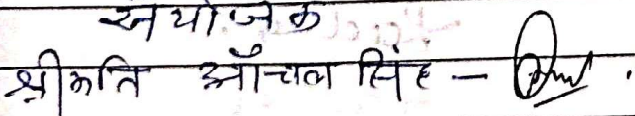 संयोजक
श्रीमति आँचल सिंह –